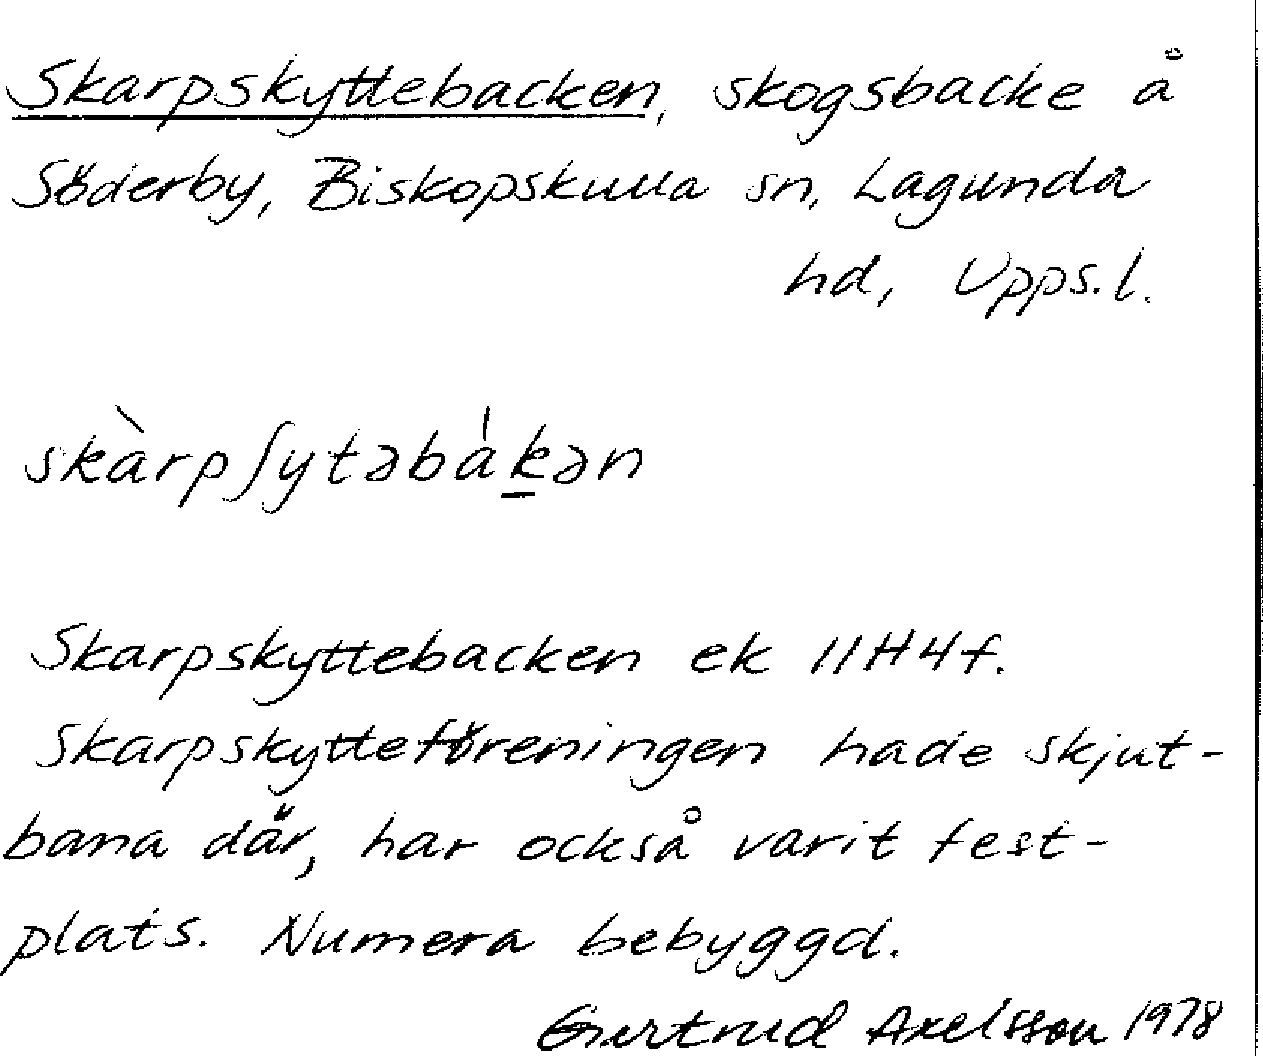 Skarpskyttebacken, skogsbacke å
Söderby, Biskopskulla sn, Lagunda
hd, Upps.l.
skàrpʃytəbák̲ən
Skarpskyttebacken ek 11H4f.
Skarpskytteföreningen hade skjut-
bana där, har också varit fest-
plats. Numera bebyggd.
Gertrud Axelsson 1978